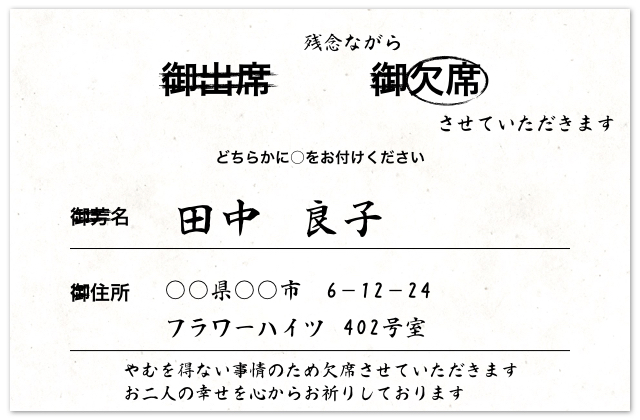 残念ながら
御出席 御欠席
させていただきます
どちらかに○をお付けください
御芳名 田中 良子
御住所 ○○県○○市 6−12−24
フラワーハイツ 402号室
やむを得ない事情のため欠席させていただきます
お二人の幸せを心からお祈りしております